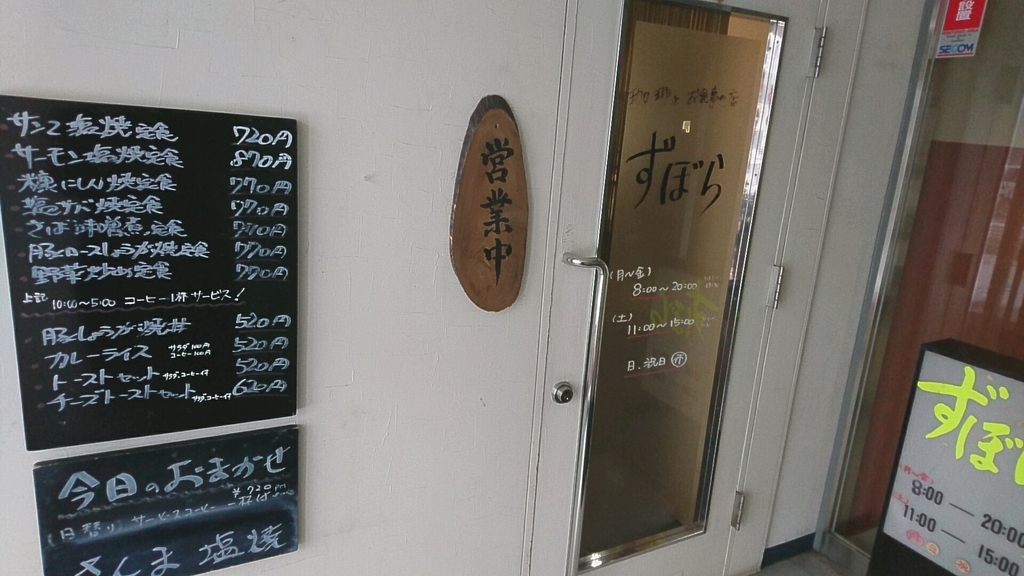 サンマ塩焼定食 720円
サーモン塩焼定食 870円
糠にしん焼定食 770円
塩さば焼定食 770円
さば味噌煮定食 770円
豚ロースしょうが焼定食 770円
野菜炒め定食 770円
上記 10:00〜5:00 コーヒー1杯サービス!
豚しょうが焼丼 520円
カレーライス サラダ100円 コーヒー100円 520円
トーストセット サラダ.コーヒー付 520円
チーズトーストセット サラダ.コーヒー付 620円
今日のおまかせ
¥720円
(日替り サービスコーヒー一杯付
さんま塩焼
営業中
ずぼら
(月〜金)
8:00〜20:00
(土)
11:00〜15:00
日.祝日 休
設置
SECOM
ずぼ
(月〜金)
8:00 — 20:00
(土)
11:00 — 15:00